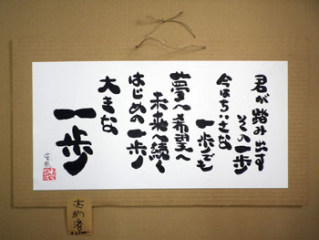 君が踏み出す
その一歩
今はちいさな
一歩でも
夢へ希望へ
未来へ続く
はじめの一歩
大きな
一歩